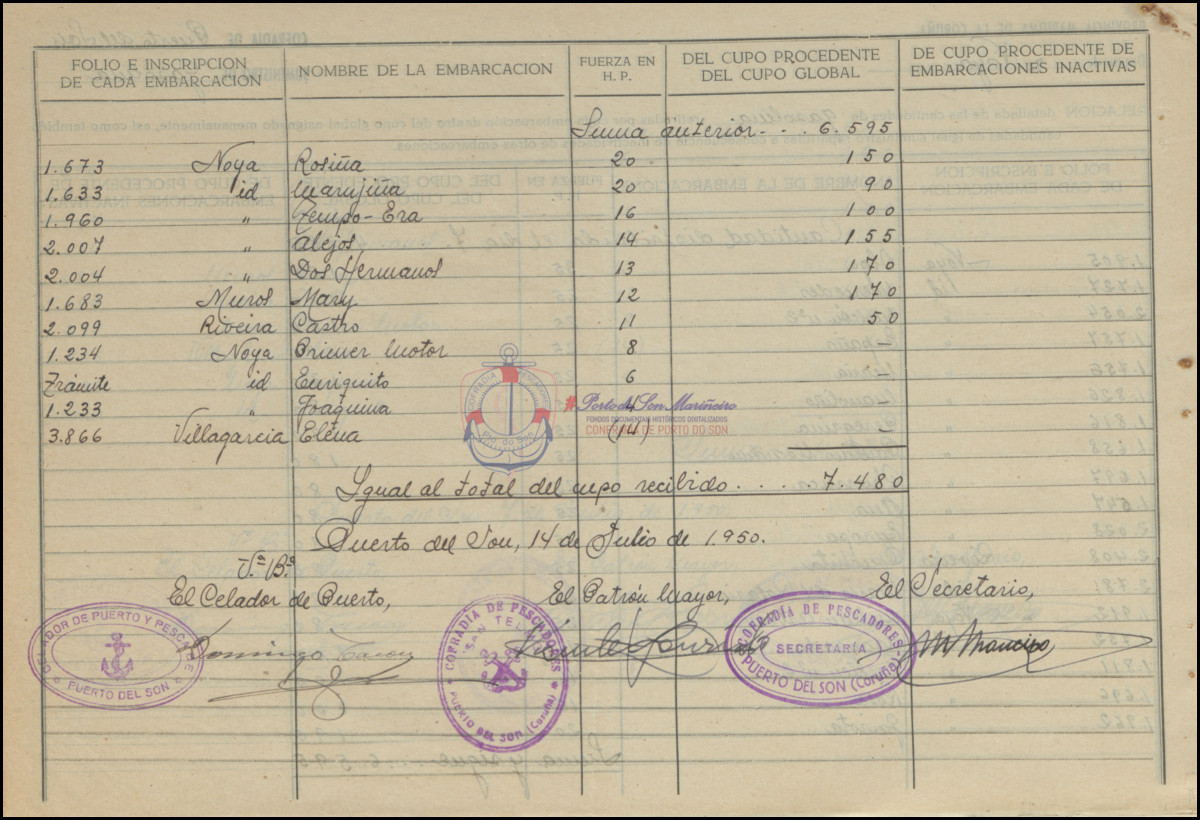 FOLIO E INSCRIPCION DE CADA EMBARCACION | NOMBRE DE LA EMBARCACION | FUERZA EN H. P. | DEL CUPO PROCEDENTE DEL CUPO GLOBAL | DE CUPO PROCEDENTE DE EMBARCACIONES INACTIVAS
Suma anterior . . . 6.595
1.673 Noya Rosiña 20 150
1.633 id Marujiña 20 90
1.960 " Tempo-Era 16 100
2.007 " Alejos 14 155
2.004 " Dos Hermanos 13 170
1.683 Muros Mary 12 170
2.099 Riveira Castro 11 50
1.234 Noya Primer Motor 8 -
Trámite id Enriquito 6 -
1.233 " Joaquina 4
3.866 Villagarcia Elena (14) -
Igual al total del cupo recibido . . . . . 7.480
Puerto del Son, 14 de Julio de 1.950.
V.º B.º
El Celador de Puerto, El Patrón Mayor, El Secretario,
CELADOR DE PUERTO Y PESCA
PUERTO DEL SON
Domingo
COFRADÍA DE PESCADORES
SAN TELMO
PUERTO DEL SON (Coruña)
COFRADÍA DE PESCADORES
SECRETARÍA
PUERTO DEL SON (Coruña)
COFRADÍA PESCADORES
Pto. do Son
#Porto do Son Mariñeiro
FONDOS DOCUMENTAIS HISTÓRICOS DIXITALIZADOS
CONFRARÍA DE PORTO DO SON